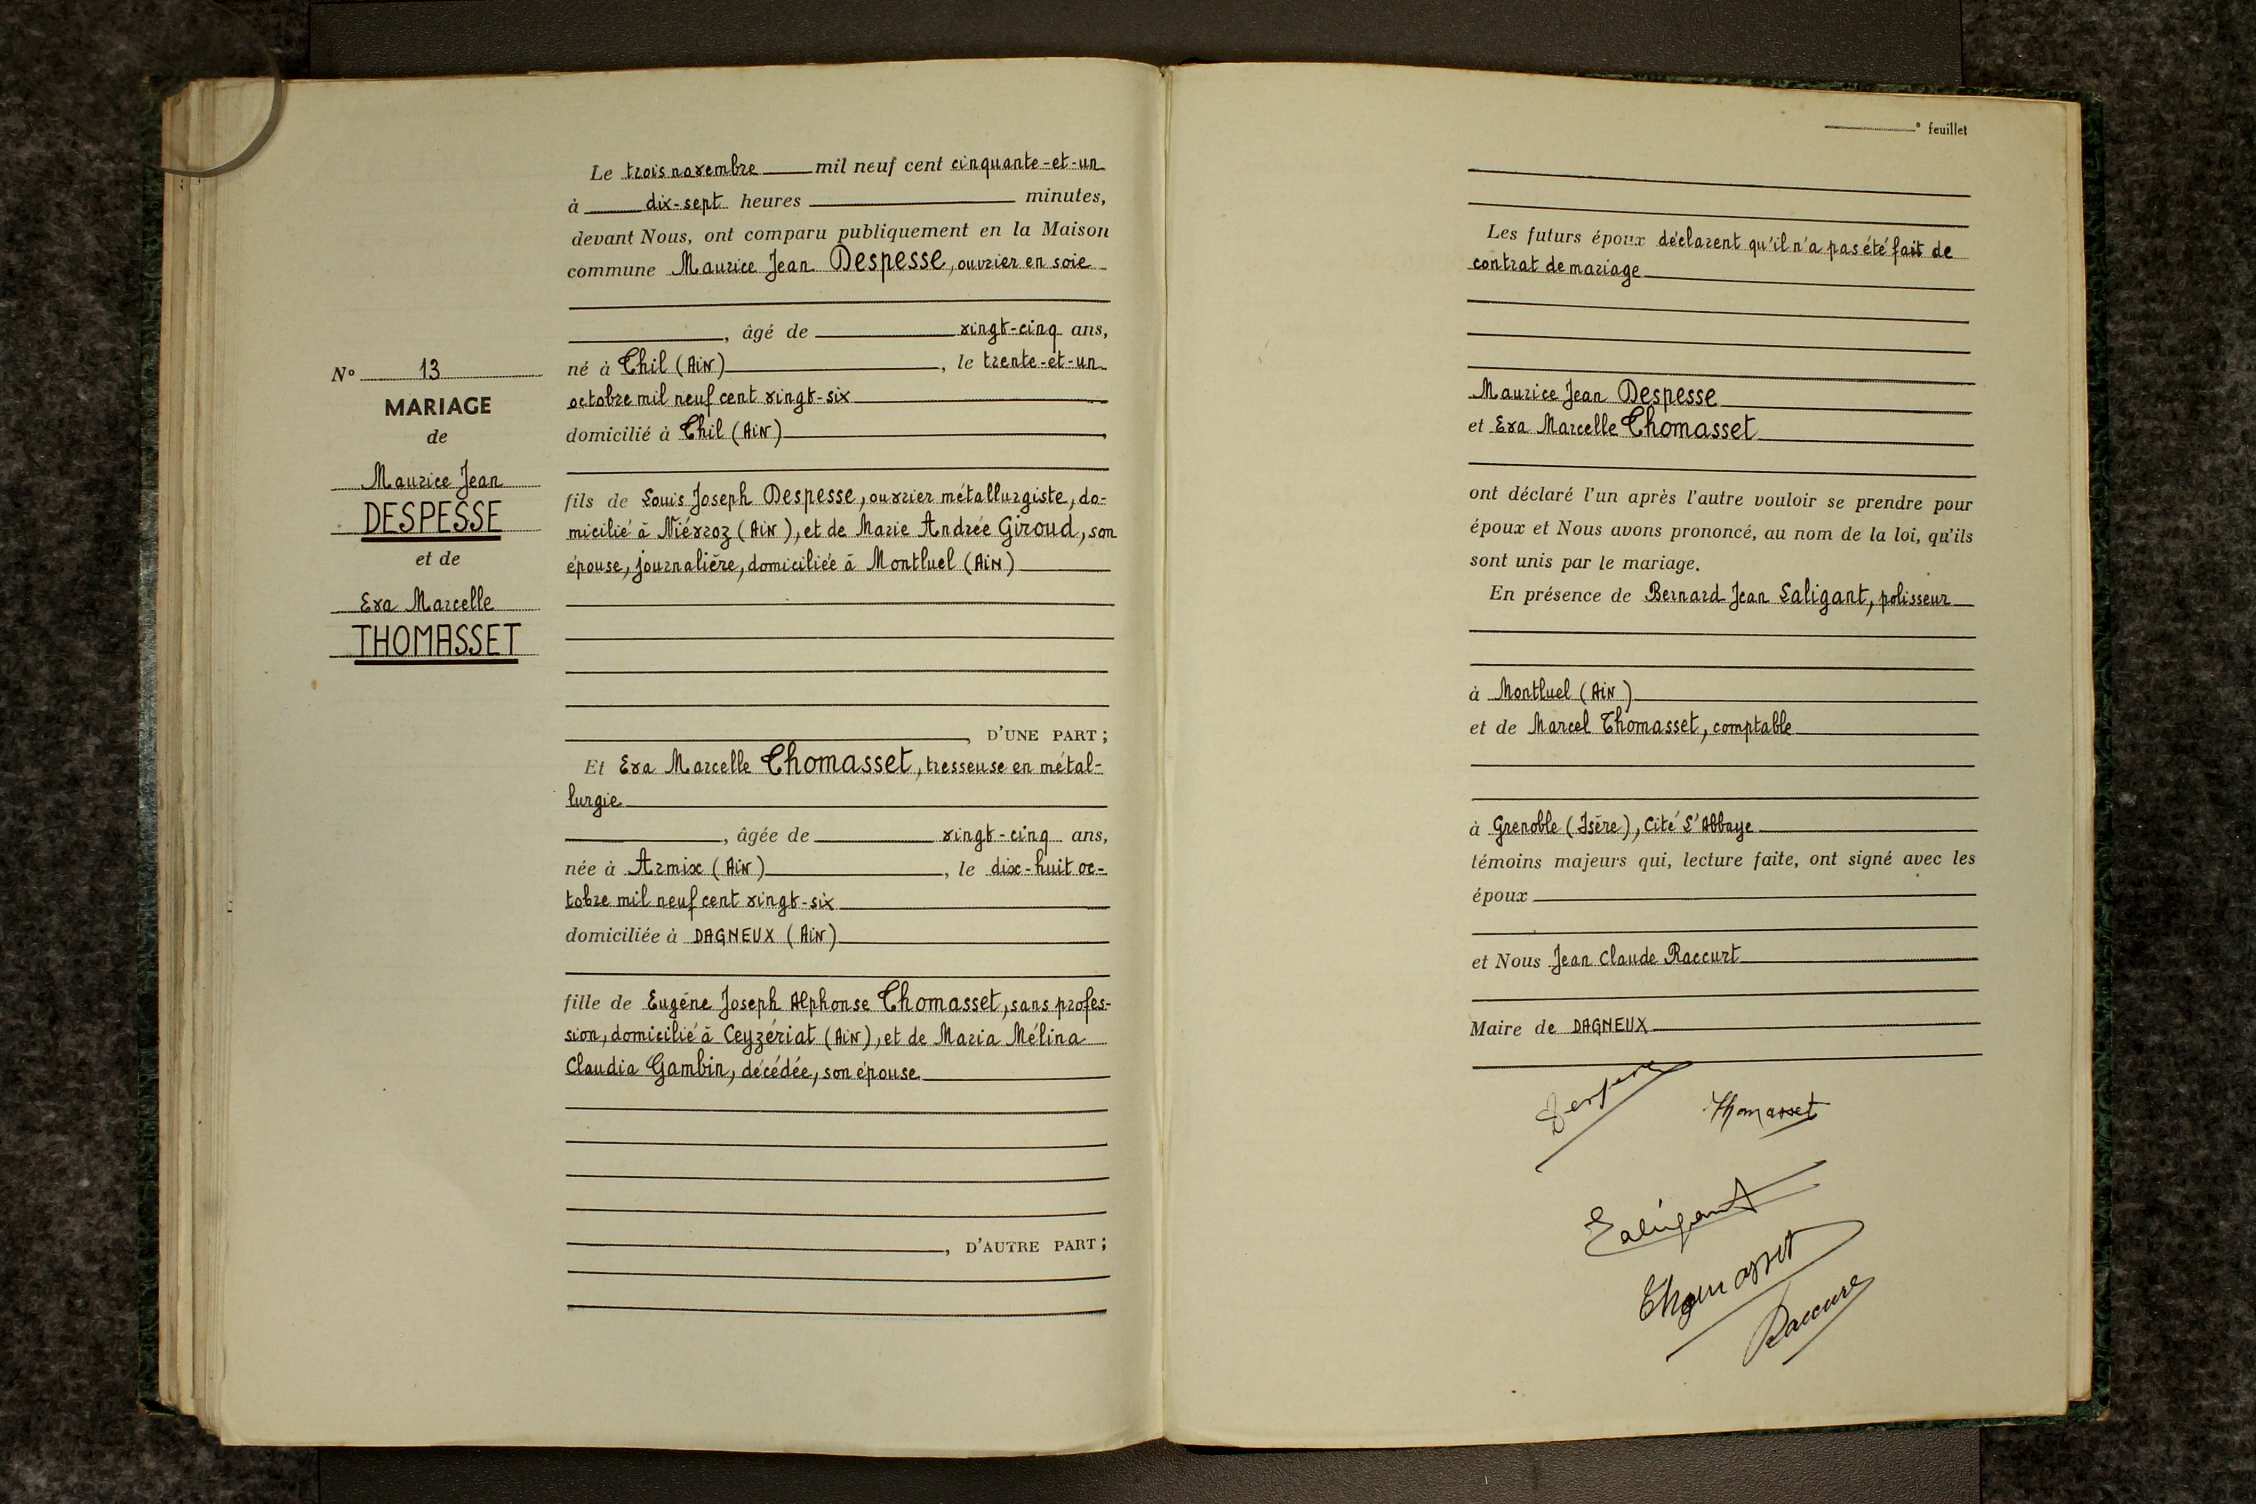 Le trois novembre mil neuf cent cinquante-et-un
à dix-sept heures minutes,
devant Nous, ont comparu publiquement en la Maison
commune Maurice Jean Despesse, ouvrier en soie
, âgé de vingt-cinq ans,
né à Thil (AiN), le trente-et-un
octobre mil neuf cent vingt-six
domicilié à Thil (AiN)
fils de Louis Joseph Despesse, ouvrier métallurgiste, do-
micilié à Niévroz (AiN), et de Marie Andrée Giroud, son
épouse, journalière, domiciliée à Montluel (AiN)
, D'UNE PART ;
Et Eva Marcelle Thomasset, tresseuse en métal-
lurgie
, âgée de vingt-cinq ans,
née à Armix (AiN), le dix-huit oc-
tobre mil neuf cent vingt-six
domiciliée à DAGNEUX (AiN)
fille de Eugène Joseph Alphonse Thomasset, sans profes-
sion, domicilié à Ceyzériat (AiN), et de Maria Mélina
Claudia Gambin, décédée, son épouse
, D'AUTRE PART ;
N° 13
MARIAGE
de
Maurice Jean
DESPESSE
et de
Eva Marcelle
THOMASSET
° feuillet
Les futurs époux déclarent qu'il n'a pas été fait de
contrat de mariage
Maurice Jean Despesse
et Eva Marcelle Thomasset
ont déclaré l'un après l'autre vouloir se prendre pour
époux et Nous avons prononcé, au nom de la loi, qu'ils
sont unis par le mariage.
En présence de Bernard Jean Saligant, polisseur
à Montluel (AiN)
et de Marcel Thomasset, comptable
à Grenoble (Isère), Cité L'Abbaye
témoins majeurs qui, lecture faite, ont signé avec les
époux
et Nous Jean Claude Raccurt
Maire de DAGNEUX
Despesse
Thomasset
Saligant
Thomasset
Raccurt